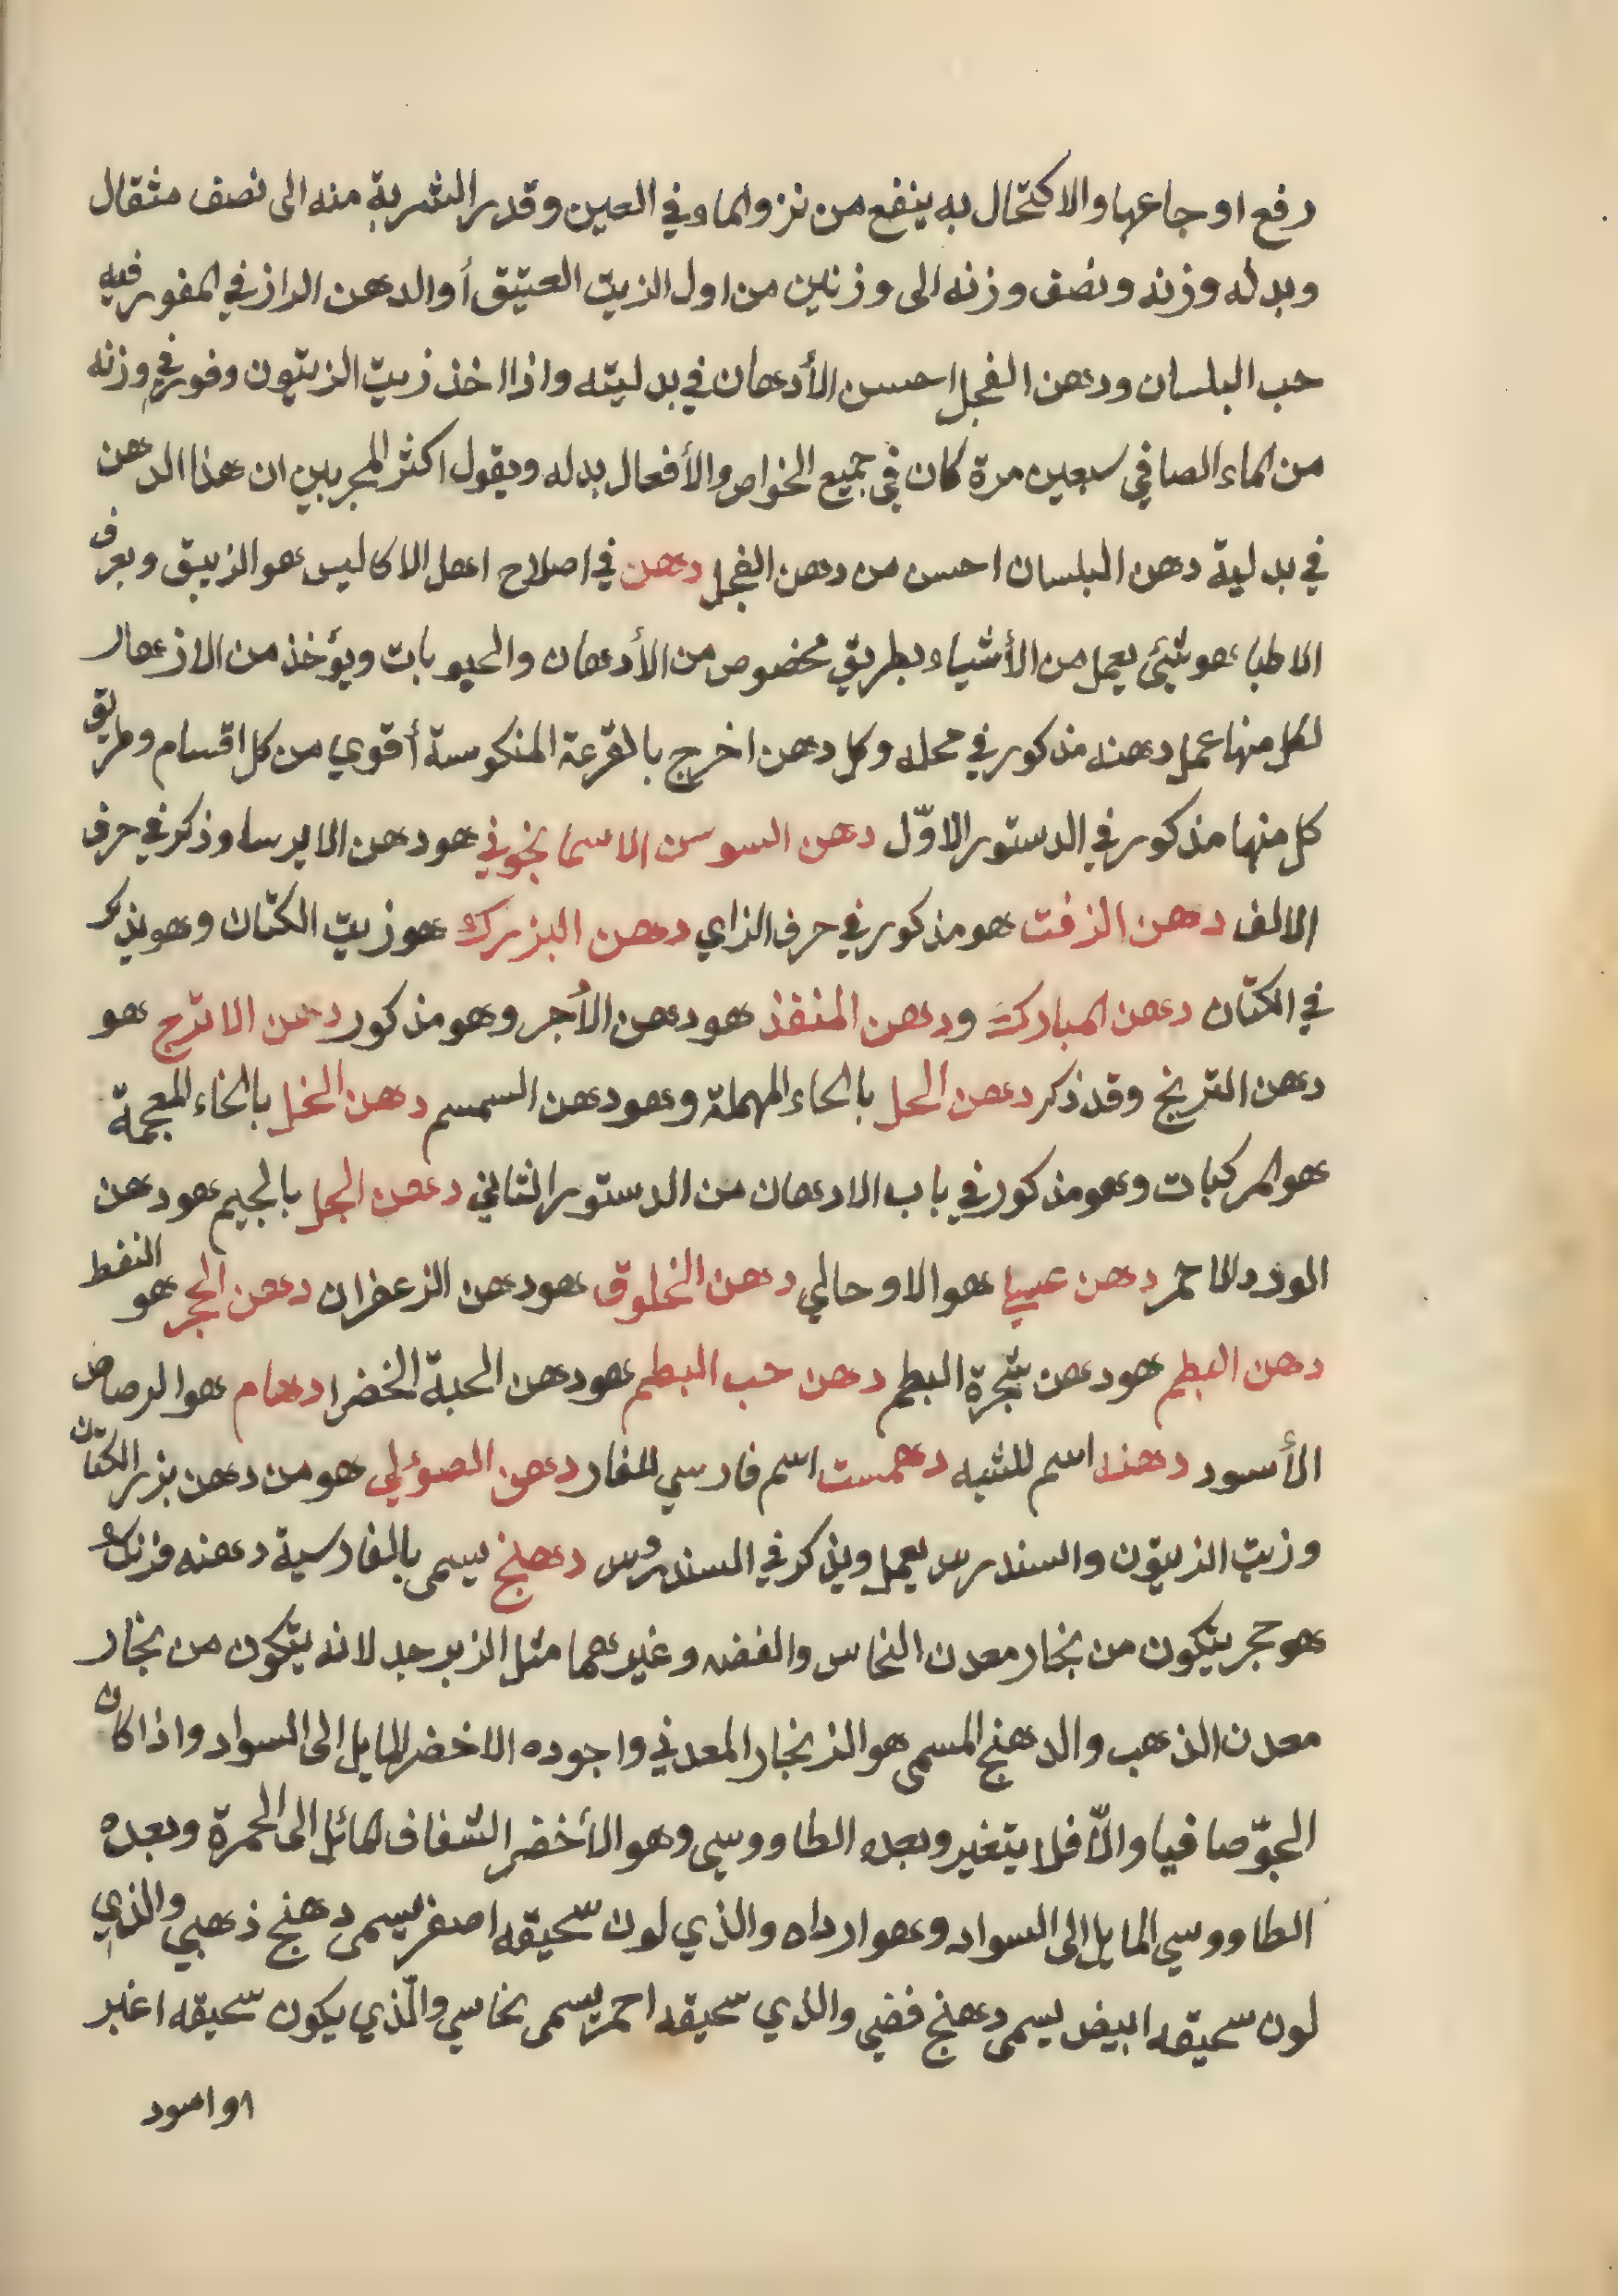 رفع اوجاعها والاكتحال به ينفع من نزول الماء في العين وقدر الشربة منه الى نصف مثقال
وبدله وزنه ونصف وزنه الى وزنين من اول الزيت العتيق أو الدهن الرازقي المفور فيه
حب البلسان ودهن الفجل احسن الأدهان في بدليته واذا اخذ زيت الزيتون وفور في وزنه
من الماء الصافي سبعين مرة كان في جميع الخواص والأفعال بدله ويقول اكثر المجربين ان هذا الدهن
في بدلية دهن البلسان احسن من دهن الفجل دهن في اصلاح اهل الاكاليس هو الزيبق وبعرف
الاطباء هو شيئ يعمل من الأشياء بطريق مخصوص من الأدهان والحبوبات ويؤخذ من الازهار
لكل منها عمل دهنه مذكور في محله وكل دهن اخرج بالقرعة المنكوسة أقوي من كل اقسام وطريق
كل منها مذكور في الدستور الاوّل دهن السوسن الاسمانجوني هو دهن الايرسا وذكر في حرف
الالف دهن الزفت هو مذكور في حرف الزاي دهن البزرك هو زيت الكتان وهو يذكر
في الكتان دهن المبارك ودهن المنفذ هو دهن الأجر وهو مذكور دهن الاترج هو
دهن الترنج وقد ذكر دهن الحل بالحاء المهملة وهو دهن السمسم دهن الخل بالخاء المعجمة
هو المركبات وهو مذكور في باب الادهان من الدستور الثاني دهن الجل بالجيم هو دهن
الورد الاحمر دهن عسيا هو الاوحالي دهن الخلوق هو دهن الزعفران دهن الحجر هو النفط
دهن البطم هو دهن شجرة البطم دهن حب البطم هو دهن الحبة الخضرا دهام هو الرصاص
الأسود دهنه اسم للشبه دهمست اسم فارسي للغار دهن الصوؤلي هو من دهن بزر الكتان
وزيت الزيتون والسندرس يعمل ويذكر في السندروس دهنج يسمى بالفارسية دهنه فرنك
هو حجر يتكون من بخار معدن النحاس والفضه وغيرهما مثل الزبرجد لانه يتكون من بخار
معدن الذهب والدهنج المسمى هو الزنجار المعدني واجوده الاخضر المايل الى السواد واذا كان
الجوّ صافيا والّا فلا يتغير وبعده الطاووسي وهو الأخضر الشفاف المائل الى الحمرة وبعده
الطاووسي المايل الى السواد وهو ارداه والذي لون سحيقه اصفر يسمى دهنج ذهبي والذي
لون سحيقه ابيض يسمى دهنج فضي والذي سحيقه احمر يسمى نحاسي والّذي يكون سحيقه اغبر
او اسود